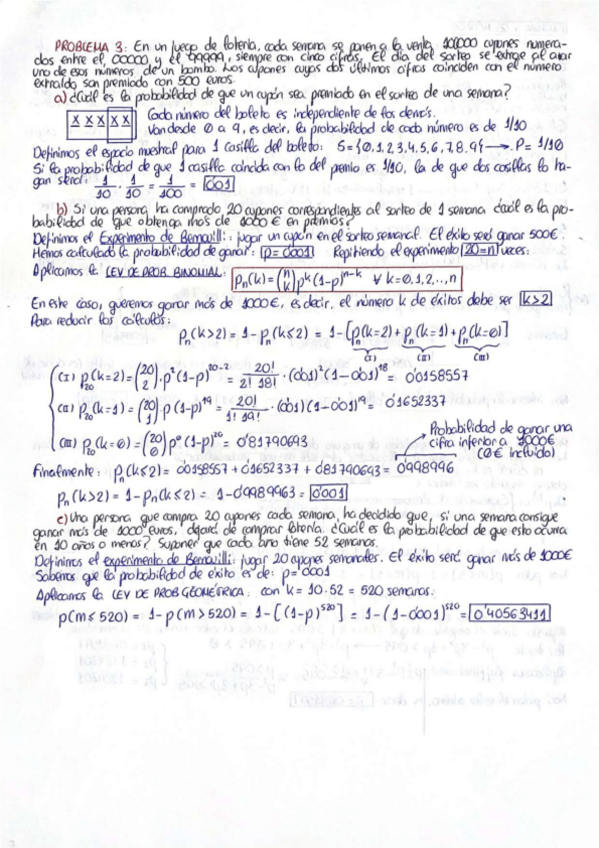 PROBLEMA 3: En un juego de lotería, cada semana se ponen a la venta 100000 cupones numera-
dos entre el, 00000 y el 99999, siempre con cinco cifras. El día del sorteo se extrae al azar
uno de esos números de un bombo. Los cupones cuyas dos últimas cifras coinciden con el número
extraído son premiado con 500 euros.
a) ¿Cuál es la probabilidad de que un cupón sea premiado en el sorteo de una semana?
X X X X X Cada número del boleto es independiente de los demás.
Van desde 0 a 9, es decir, la probabilidad de cada número es de 1/10
Definimos el espacio muestral para 1 casilla del boleto: S={0,1,2,3,4,5,6,7,8,9} → P= 1/10
Si la probabilidad de que 1 casilla coincida con la del premio es 1/10, la de que dos casillas lo ha-
gan será: 1/10 · 1/10 = 1/100 = 0'01
b) Si una persona ha comprado 20 cupones correspondientes al sorteo de 1 semana ¿cuál es la pro-
babilidad de que obtenga más de 1000 € en premios?
Definimos el Experimento de Bernouilli: jugar un cupón en el sorteo semanal. El éxito será ganar 500€.
Hemos calculado la probabilidad de ganar: p= 0'01 Repitiendo el experimento 20=n veces:
Aplicamos la LEY DE PROB. BINOMIAL: Pn(k) = (n k) p^k (1-p)^n-k ∀ k=0,1,2,..,n
En este caso, queremos ganar más de 1000€, es decir, el número k de éxitos debe ser k>2
Para reducir los cálculos:
Pn(k>2) = 1 - Pn(k≤2) = 1-[Pn(k=2) + Pn(k=1) + Pn(k=0)]
(I) (II) (III)
(I) P20(k=2) = (20 2) · p²(1-p)^20-2 = 20!/2! 18! · (0'01)²(1-0'01)^18 = 0'0158557
(II) P20(k=1) = (20 1) · p(1-p)^19 = 20!/1! 19! · (0'01)(1-0'01)^19 = 0'1652337
(III) P20(k=0) = (20 0) p⁰(1-p)^20 = 0'81790693
Probabilidad de ganar una
cifra inferior a 1000€
(0€ incluído)
Finalmente: Pn(k≤2) = 0'0158557 + 0'1652337 + 0'81790693 = 0'998996
Pn(k>2) = 1-Pn(k≤2) = 1-0'9989963 = 0'001
c) Una persona que compra 20 cupones cada semana, ha decidido que, si una semana consigue
ganar más de 1000 euros, dejará de comprar lotería. ¿Cuál es la probabilidad de que esto ocurra
en 10 años o menos? Suponer que cada año tiene 52 semanas.
Definimos el experimento de Bernouilli: jugar 20 cupones semanales. El éxito será ganar más de 1000€
Sabemos que la probabilidad de éxito es de: p= 0'001
Aplicamos la LEY DE PROB GEOMÉTRICA: con k = 10·52 = 520 semanas:
p(m≤520) = 1-p(m>520) = 1-[(1-p)^520] = 1-(1-0'001)^520 = 0'40563411